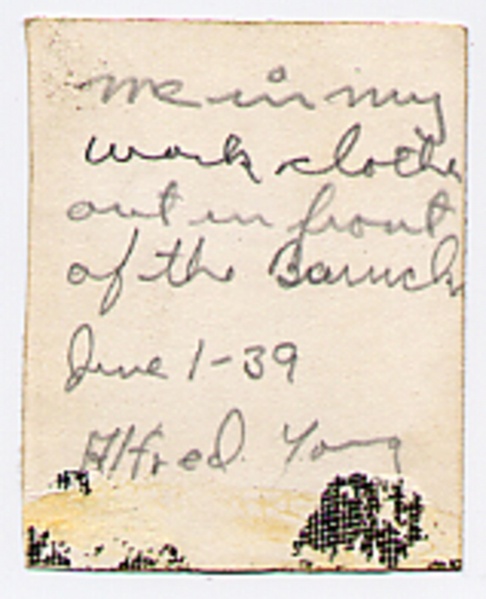 me in my
work clothe
out in front
of the Barrack
June 1-39
Alfred Young